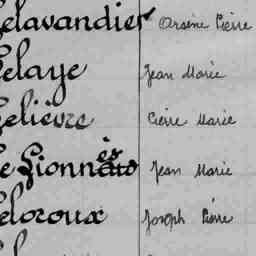 Lelavandier Arsène Pierre
Lelaye Jean Marie
Lelièvre Pierre Marie
Le Lionnais Jean Marie
Leloroux Joseph Pierre